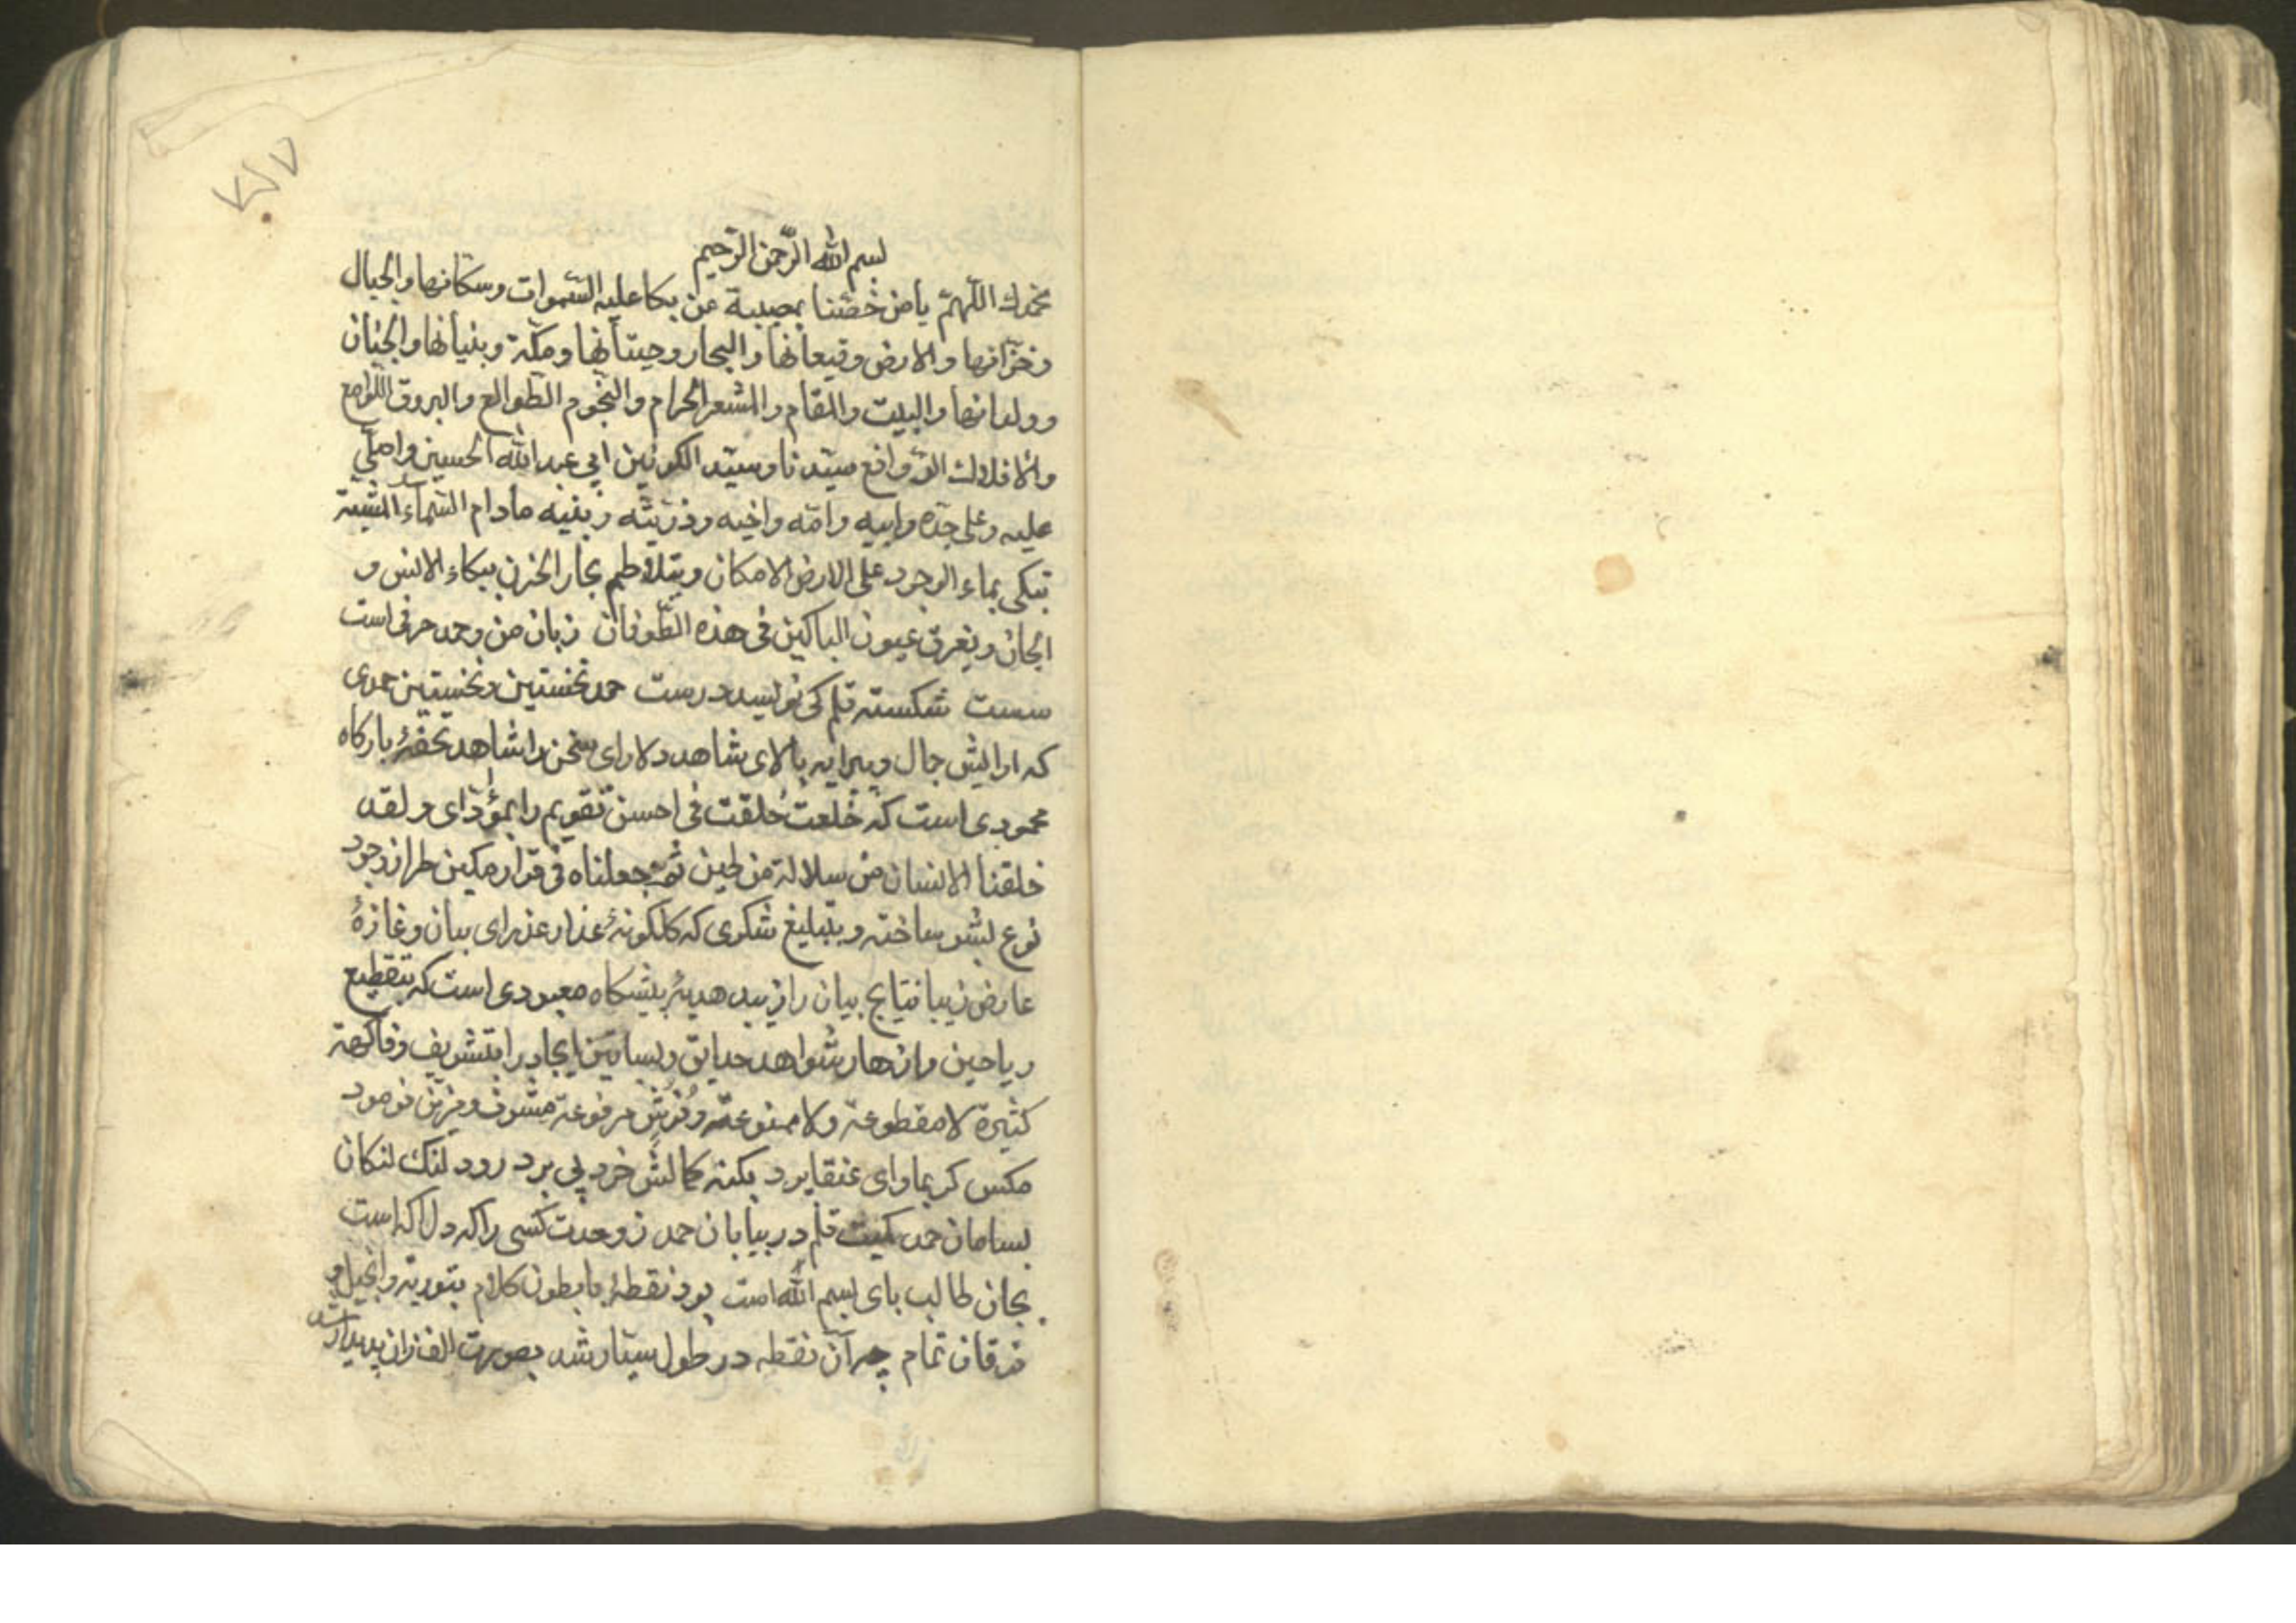 بسم الله الرّحمن الرّحيم
نحمدك اللّهمّ يا من خصّنا بمصيبة من بكا عليه السّموات وسكانها والجبال
وخزّانها والارض وقيعانها والبحار وحيتانها ومكّة وبنيانها والجنان
وولدانها والبيت والمقام والمشعر الحرام والنجوم الطوالع والبروق اللوامع
والافلاك الدوافع سيّدنا وسيّد الكونين ابي عبد الله الحسين واصلّي
عليه وعلى جدّه وابيه وامّه واخيه وذرّيته وبنيه مادام السّماء
تبكى بماء الوجود على الارض الامكان ويتلاطم بحار الحزن ببكاء الانس و
الجان ويغرق عيون الباكين فى هذه الطّوفان زبان من وحمد حرفى است
سست شكسته قلم كى نويسد درست حمد نخستين ونخستين حمدى
كه ارايش جمال وپيرايه بالاى شاهد دلاراى سخن را شاهد تحفهٔ باركاه
محمودى است كه خلعت خلقت فى احسن تقويم را بمؤدّاى ولقد
خلقنا الانسان من سلالة من طين ثمّ جعلناه فى قرار مكين طراز وجود
نوع بشر ساخته وبتبليغ شكرى كه كلكونهٔ عذار عذراى بيان وغازهٔ
عارض زيبا نتايج بيان را زيبد هديهٔ پيشكاه معبودى است كه بتقطيع
رياحين وازهار شواهد حدايق وبساتين ايجاد را بتشريف وفاكهة
كثيرة لا مقطوعة ولا ممنوعة وفُرُش مرفوعة مشرف ومزيّن فرمود
مكس كر بماواى عنقا پرد بكنه كمالش خرد پى برد رود لنك لنكان
بسامان حمد كميت قلم در بيابان حمد ز وحدت كسى را كه دل اكه است
بجان طالب باى بسم الله است بود نقطهٔ با بطون كلام بتورية وانجيل و
فرقان تمام چه آن نقطه در طول سيّار شد بصورت الف زان پديدار شد